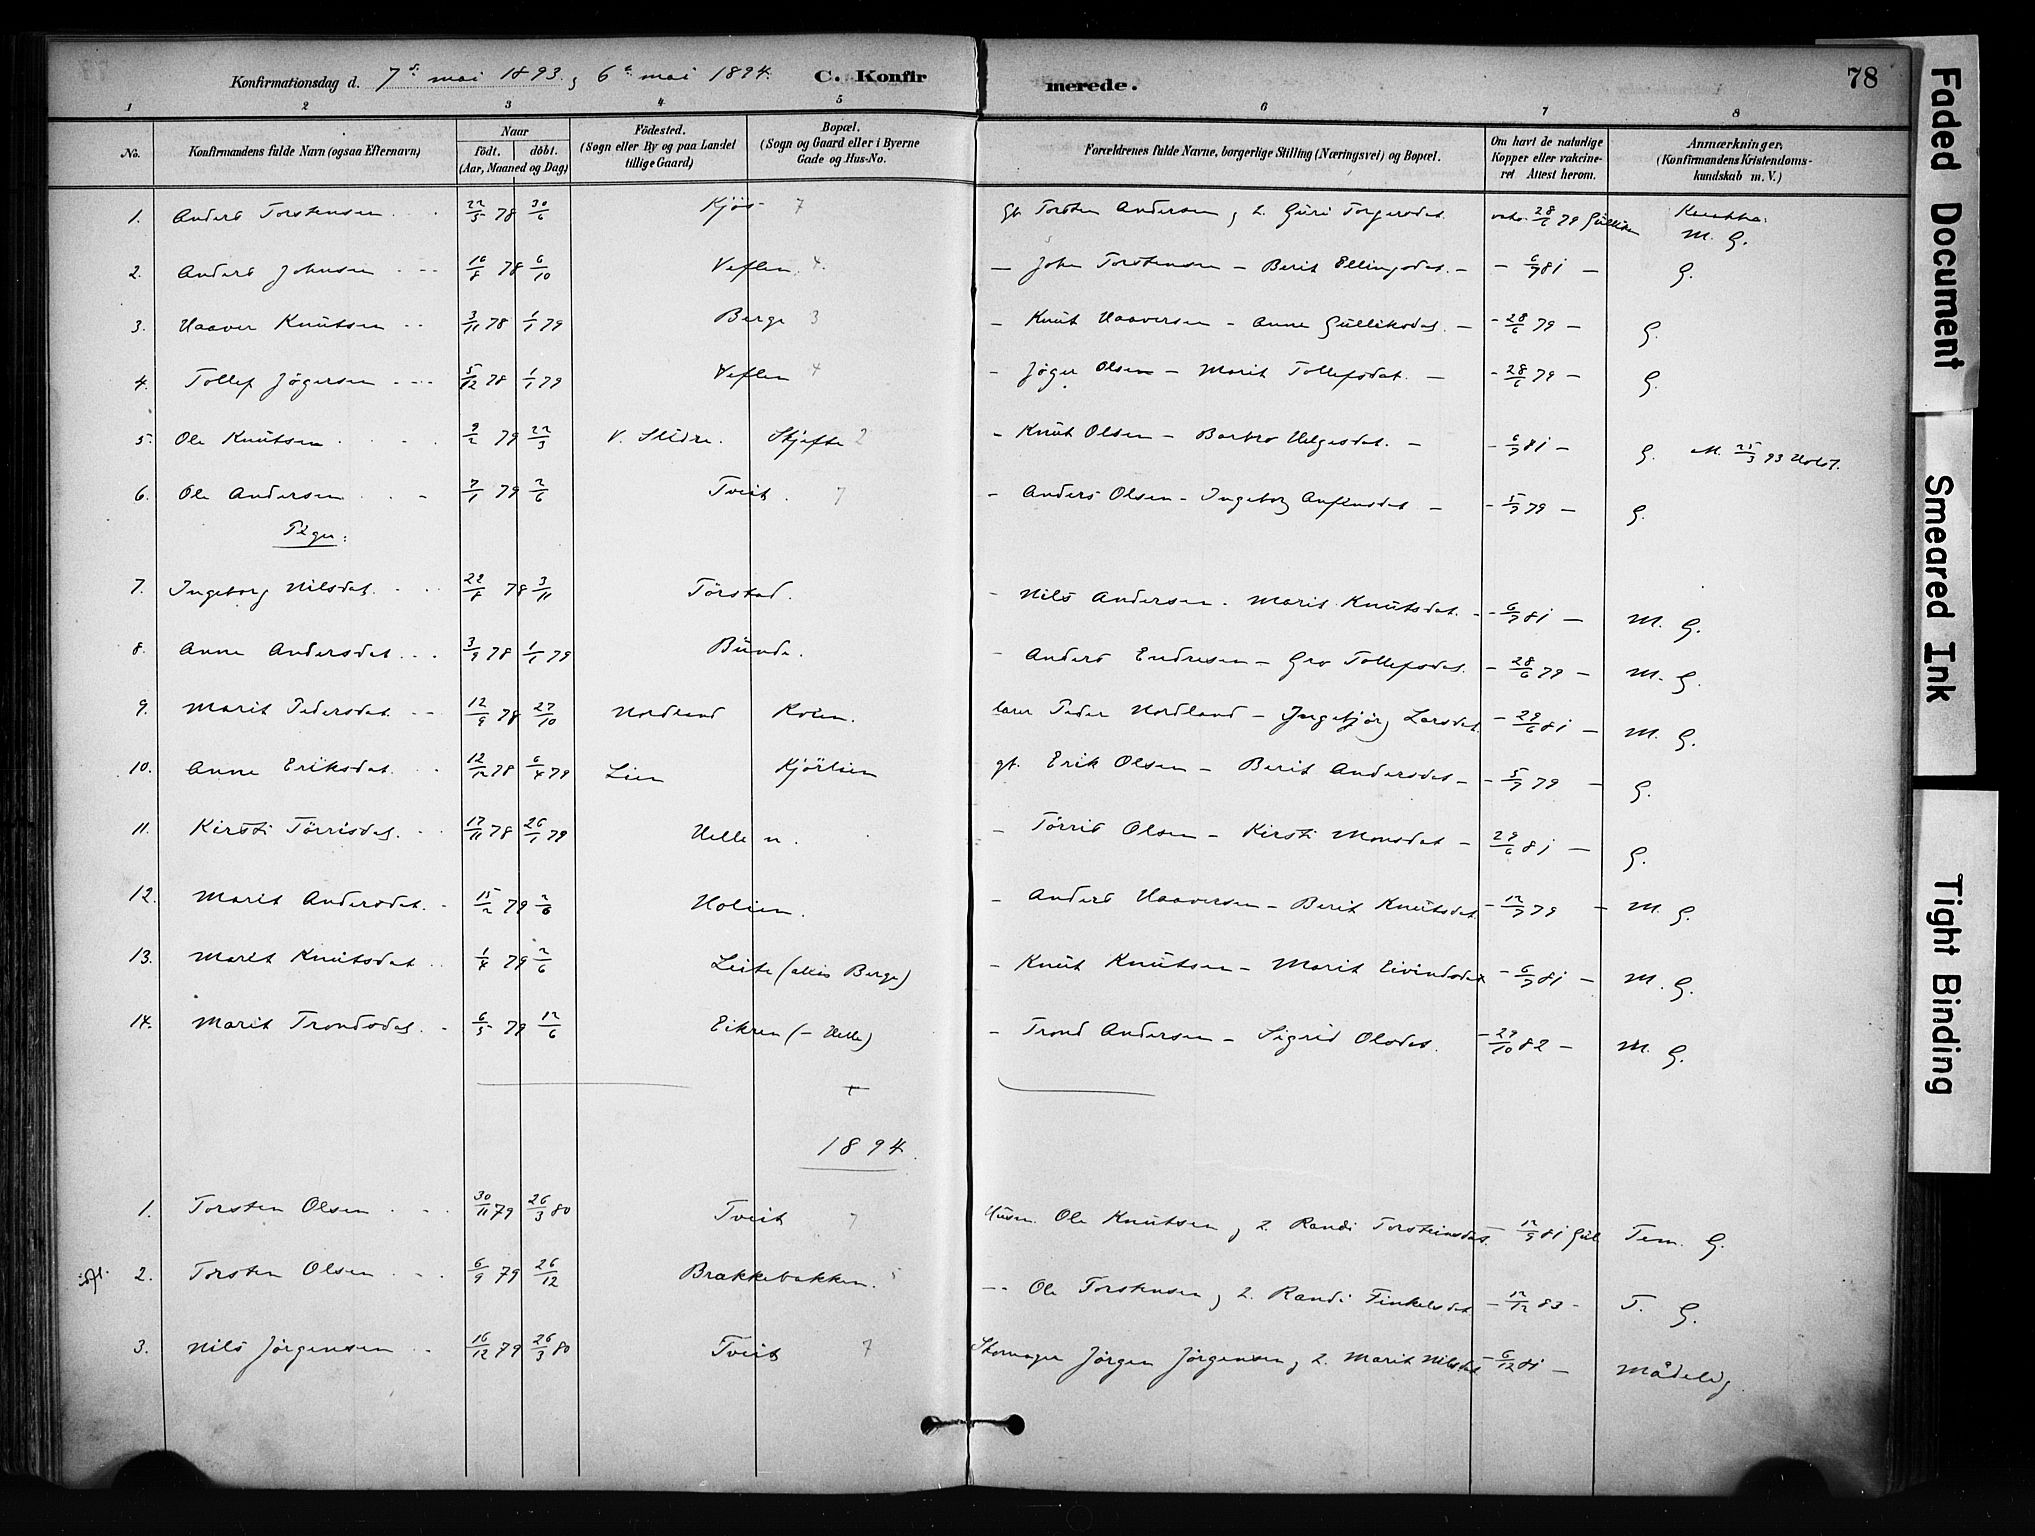 78
Konfirmationsdag d. 7de mai 1893 og 6te mai 1894. C. Konfirmerede.
1 2 3 4 5 6 7 8
No. Konfirmandens fulde Navn (ogsaa Efternavn) Naar født. døbt. (Aar, Maaned og Dag) Födested. (Sogn eller By og paa Landet tillige Gaard) Bopæl. (Sogn og Gaard eller i Byerne Gade og Hus-No. Forældrenes fulde Navne, borgerlige Stilling (Næringsvei) og Bopæl. Om havt de naturlige Kopper eller vakcineret Attest herom. Anmærkninger, (Konfirmandens Kristendomskundskab m. V.)
1. Anders Torstensen 22/5 78 30/6 Kjøs 7 gb. Torsten Andersen og h. Guri Torgersdat. 28/6 79 M. G.
2. Anders Johnsen 16/8 78 6/10 Veflen 4 — John Torstensen — Berit Ellingsdat. — 6/7 81 — G.
3. Haaver Knutsen 3/11 78 1/1 79 Berge 3 - Knut Haaversen — Anne Gulliksdat. — 28/6 79 — G.
4. Tollef Jøgersen 5/12 78 1/1 79 Veflen 4 - Jøger Olsen — Marit Tollefsdat. — 28/6 79 — G.
5. Ole Knutsen 9/2 79 22/3 V. Slidre. Skjefte 2 - Knut Olsen — Barbro Helgesdat. — 6/7 81 — G. 25/3 93
6. Ole Andersen 7/1 79 2/6 Tveit. 7 - Anders Olsen — Ingeborg Anfinsdat — 15/7 79 — G.
Piger:
7. Ingeborg Nilsdat. 22/8 78 3/11 Tørstad. - Nils Andersen - Marit Knutsdat. - 6/7 81 — M. G.
8. Anne Andersdat. 3/9 78 1/1 79 Bunde. - Anders Endresen — Gro Tollefsdat. — 28/6 79 — M. G.
9. Marit Pedersdat. 12/9 78 27/10 Nordland Kvien. lærer Peder Nordland — Ingebjørg Larsdat. — 29/6 81 — M. G.
10. Anne Eriksdat. 12/12 78 6/4 79 Lien Kjörlien gb. Erik Olsen — Berit Andersdat — 5/7 79 — G.
11. Kirsti Törrisdat. 17/11 78 26/1 79 Helle n. - Törris Olsen — Kirsti Monsdat — 29/6 81 — G.
12. Marit Andersdat. 15/2 79 2/6 Holien. - Anders Haaversen — Berit Knutsdat — 12/7 79 — M. G.
13. Marit Knutsdat 1/4 79 2/6 Leite (alias Berge) - Knut Knutsen — Marit Eivindsdat — 6/7 81 — M. G.
14. Marit Trondsdat. 6/5 79 12/6 Eikren (— Helle) - Trond Andersen — Sigrid Olsdat. — 29/10 82 — M. G.
1894.
1. Torsten Olsen 30/11 79 26/3 80 Tveit 7 Husm. Ole Knutsen og h. Randi Torsteinsdat. — 12/9 81 Gul Tem. G.
2. Torsten Olsen 6/9 79 26/12 Brækkebakken. 5 — Ole Torstensen og h. Randi Finkelsdat — 12/12 83 - T. G.
3. Nils Jörgensen 16/12 79 26/3 80 Tveit 7 Skomager Jörgen Jörgensen og h. Marit Nilsdat — 6/12 81 — Mådelig
Faded Document
Smeared Ink
Tight Binding